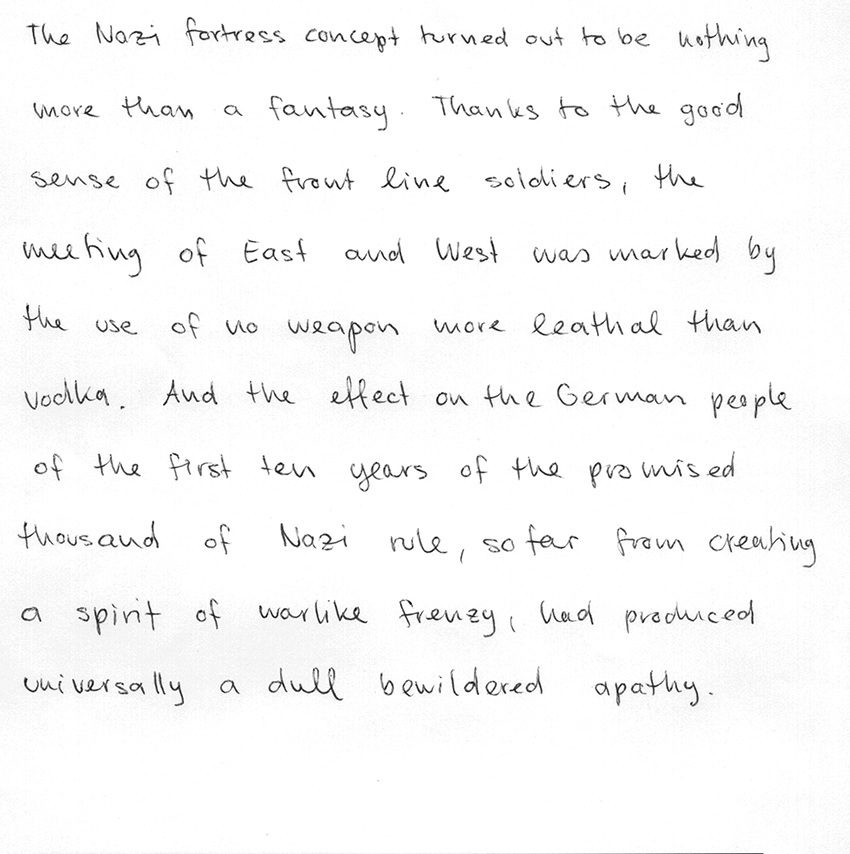 The Nazi fortress concept turned out to be nothing
more than a fantasy. Thanks to the good
sense of the front line soldiers, the
meeting of East and West was marked by
the use of no weapon more leathal than
vodka. And the effect on the German people
of the first ten years of the promised
thousand of Nazi rule, so far from creating
a spirit of warlike frenzy, had produced
universally a dull bewildered apathy.